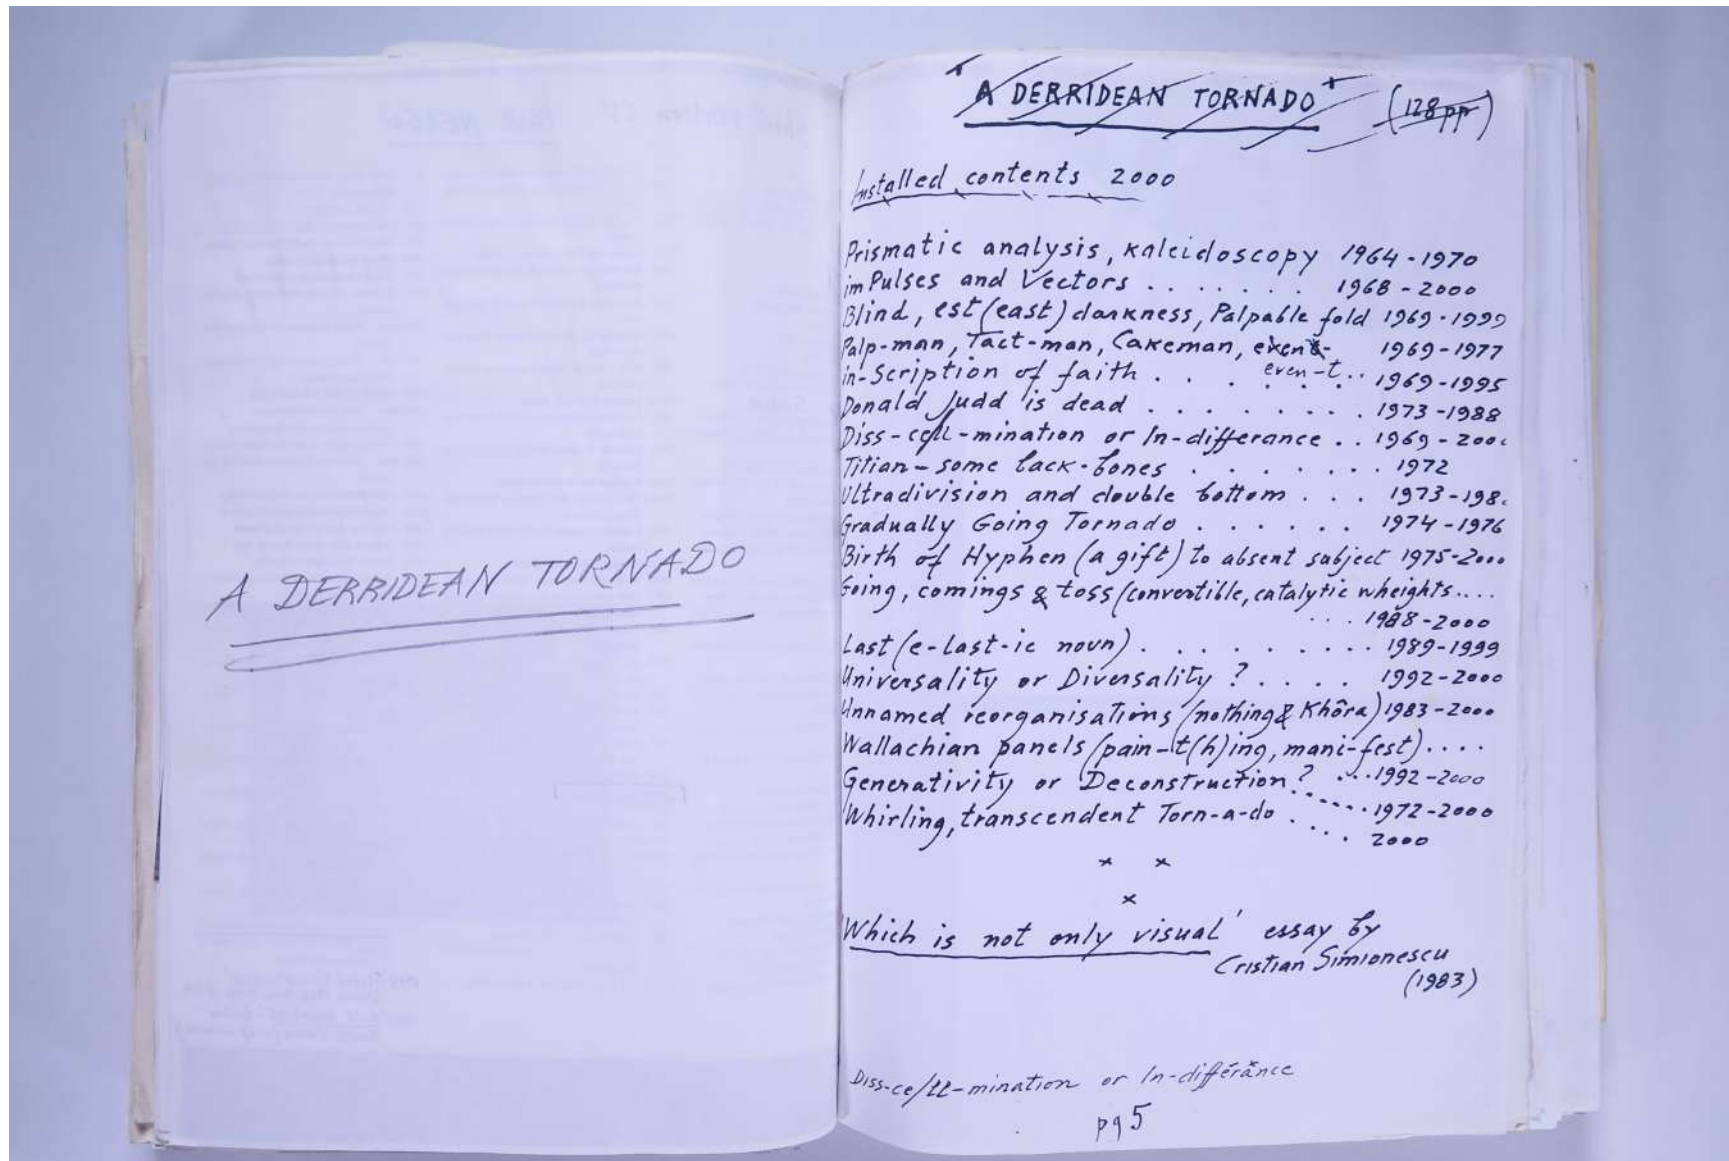 A DERRIDEAN TORNADO
"A DERRIDEAN TORNADO" (128pp)
Installed contents 2000
Prismatic analysis, kaleidoscopy 1964-1970
imPulses and Vectors . . . . . . . 1968-2000
Blind, est (east) darkness, Palpable fold 1969-1999
Palp-man, Tact-man, Cakeman, 1969-1977
even-t
in-Scription of faith . . . . . . 1969-1995
Donald Judd is dead . . . . . . . . . 1973-1988
Diss-cell-mination or In-differance . . 1969-200
Titian - some back-bones . . . . . . . 1972
Ultradivision and double bottom . . . 1973-198
Gradually Going Tornado . . . . . . 1974-1976
Birth of Hyphen (a gift) to absent subject 1975-2000
Going, comings & toss (convertible, catalytic wheights....
. . . 1988-2000
Last (e-last-ic noun) . . . . . . . . . 1989-1999
Universality or Diversality ? . . . . 1992-2000
Unnamed reorganisations (nothing & Khôra) 1983-2000
Wallachian panels (pain-t(h)ing, mani-fest) . . . .
Generativity or Deconstruction? ...1992-2000
Whirling, transcendent Torn-a-do . .....1972-2000
. . . 2000
x x
x
Which is not only visual' essay by
Cristian Simionescu
(1983)
Diss-ce/ll-mination or In-différance
pg 5